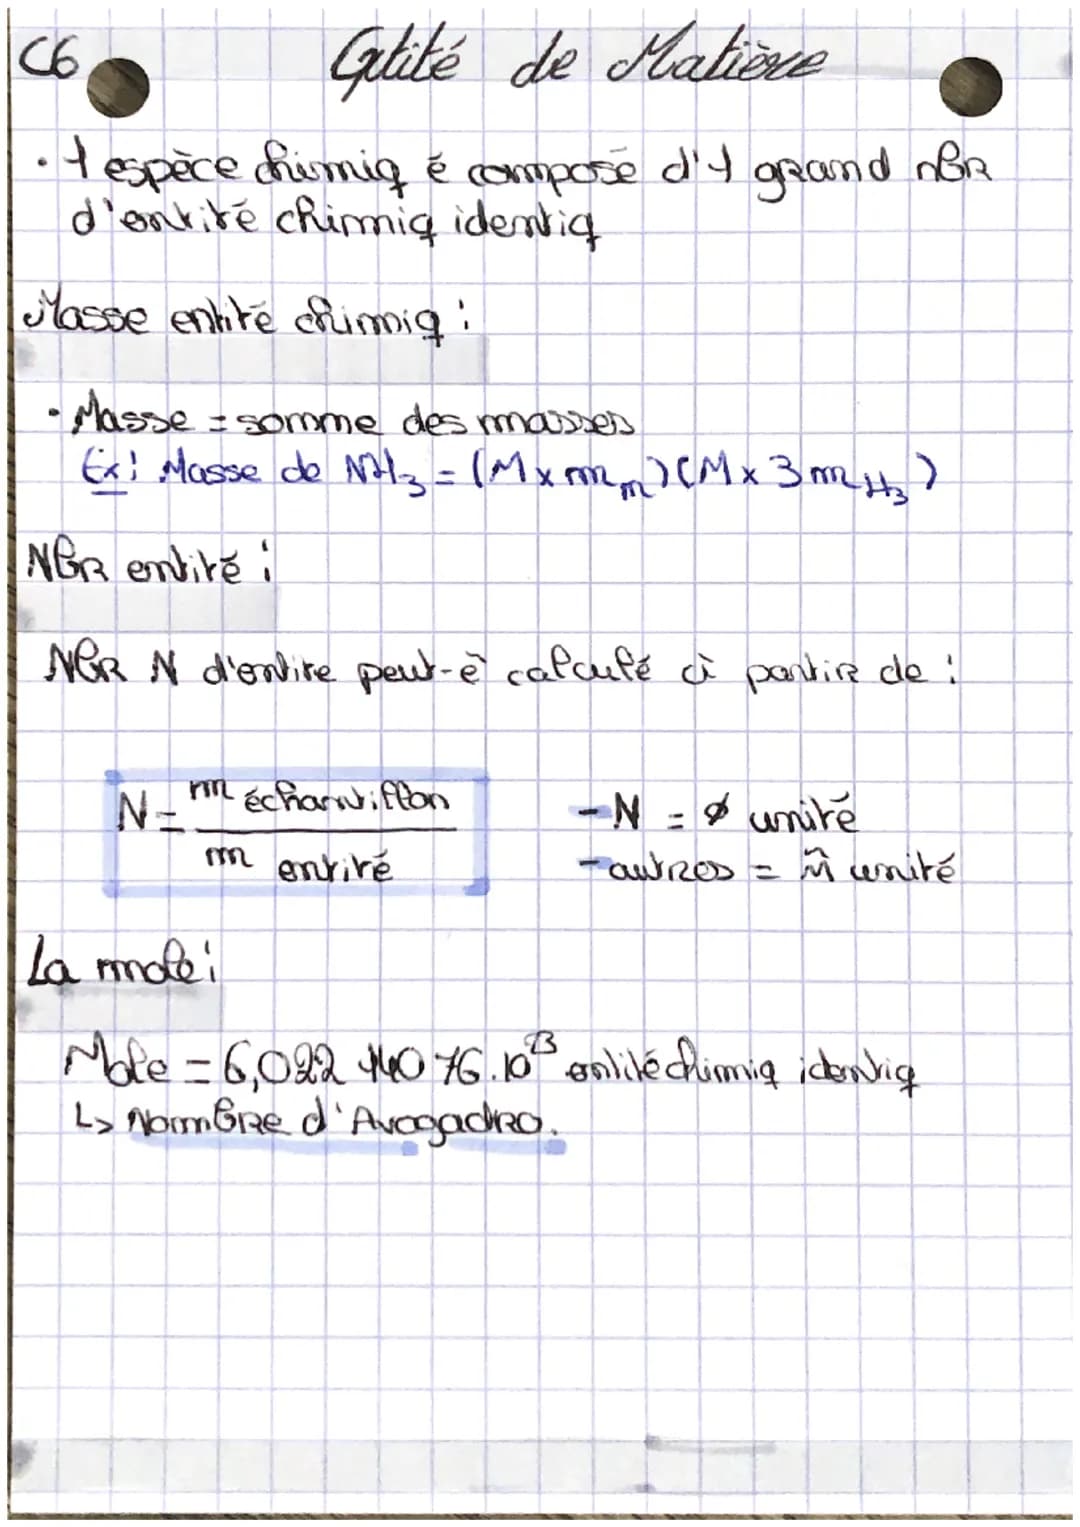 C6 Qtité de Matière
· 1 espèce chimiq é composé d'1 grand nbr
d'entité chimiq identiq
Masse entité chimiq :
· Masse = somme des masses
Ex : Masse de NH₃ = (M x m m)(M x 3 m H₃)
Nbr entité :
Nbr N d'entite peut-ê calculé à partir de :
N = m échantillon / m entité
- N = Ø unité
- autres = m̂ unité
La mole :
Mole = 6,022 140 76.10²³ entité chimiq identiq
↳ Nombre d'Avogadro.